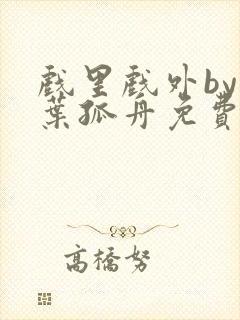 戏里戏外by
葉孤舟免費
高橋努